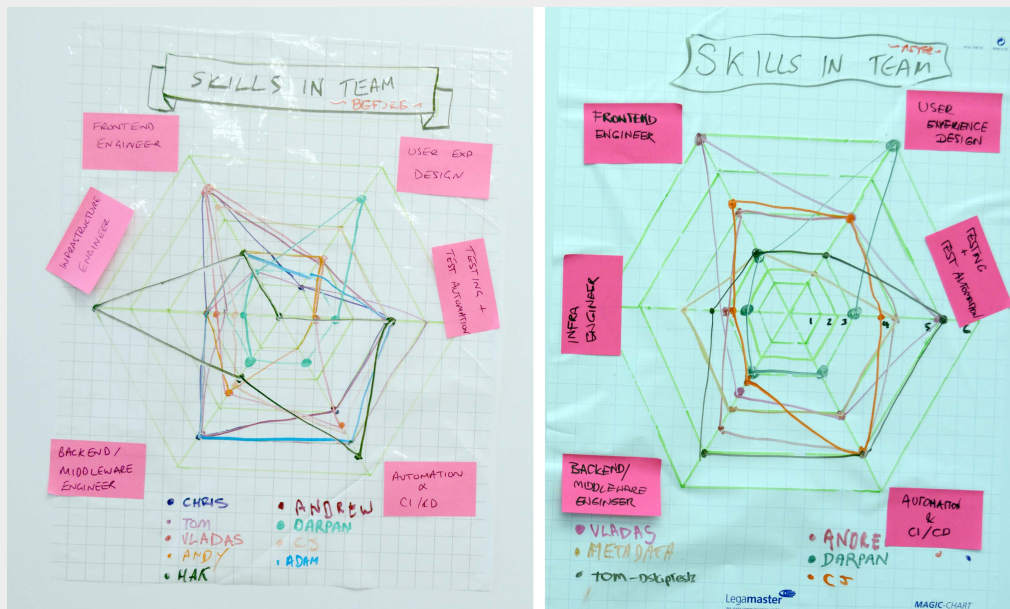 SKILLS IN TEAM
~ BEFORE ~
FRONTEND
ENGINEER
USER EXP
DESIGN
INFRASTRUCTURE
ENGINEER
TESTING +
TEST AUTOMATION
BACKEND/
MIDDLEWARE
ENGINEER
AUTOMATION
&
CI/CD
CHRIS
TOM
VLADAS
ANDY
MAK
ANDREW
DARPAN
CJ
ADAM
~ AFTER ~
SKILLS IN TEAM
FRONTEND
ENGINEER
USER
EXPERIENCE
DESIGN
INFRA
ENGINEER
TESTING
+
TEST AUTOMATION
1 2 3 4 5 6
BACKEND/
MIDDLEWARE
ENGINEER
AUTOMATION
&
CI/CD
VLADAS
METADATA
ANDRE
DARPAN
CJ
Legamaster
MAGIC-CHART